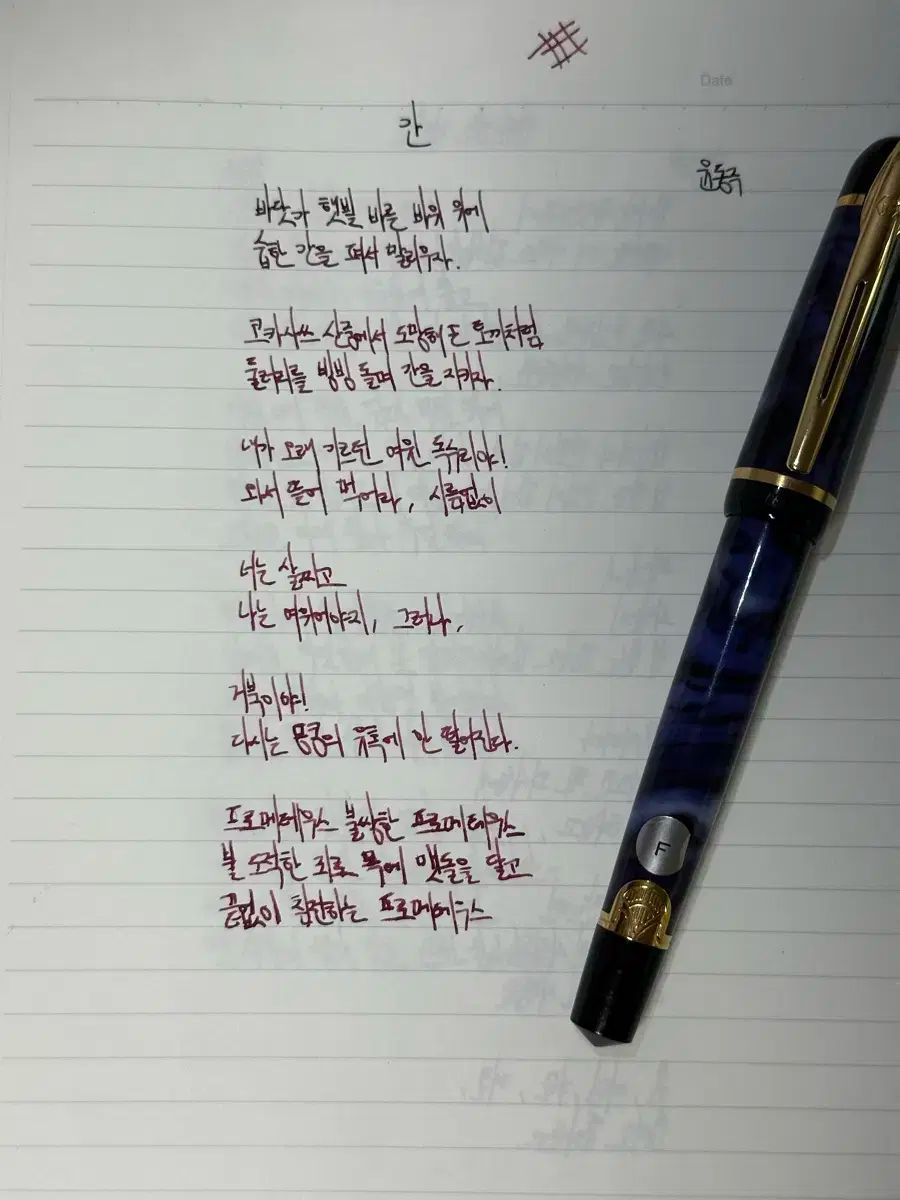 Date
간
윤동주
바닷가 햇빛 바른 바위 위에
습한 간을 펴서 말리우자.
코카사쓰 산중에서 도망해 온 토끼처럼
둘러리를 빙빙 돌며 간을 지키자.
내가 오래 기르던 여윈 독수리야!
와서 뜯어 먹어라, 시름없이
너는 살찌고
나는 여위어야지, 그러나,
거북이야!
다시는 용궁의 유혹에 안 떨어진다.
프로메테우스 불쌍한 프로메테우스
불 도적한 죄로 목에 맷돌을 달고
끝없이 침전하는 프로메테우스
F